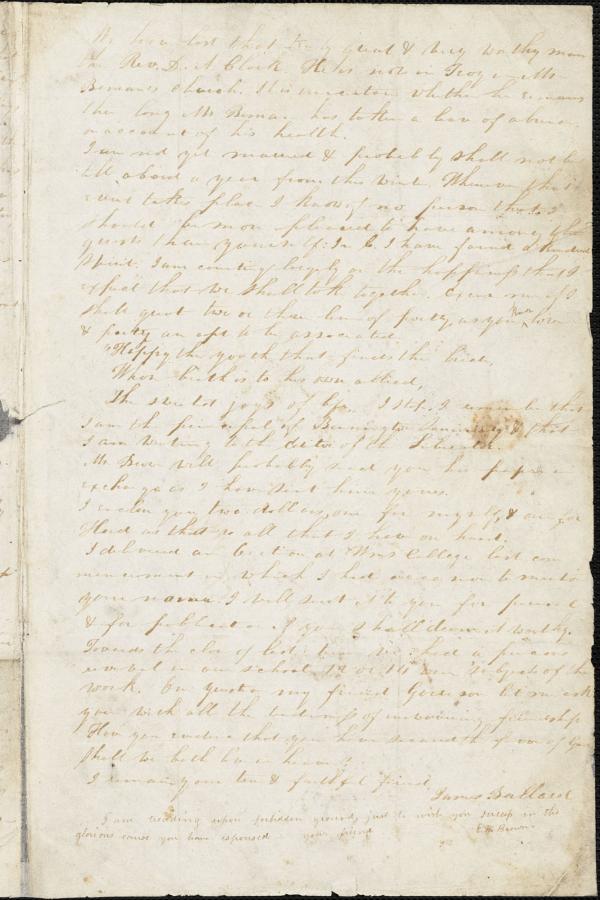 We have lost that truly great & very worthy man
the Rev. D. A Clark. He is now in Troy in Mr
Bemans church. It is uncertain whether he remains
there long Mr Beman has taken a leave of absence
on account of his health.
I am not yet married & probably shall not be
till about a year from this time. Whenever that
event takes place I know of no person that I
should be more pleased to have among the
guests than yourself. In C. I have found a kindred
spirit. I am counting largely on the happiness that I
expect that we shall take together. Excuse me if I
shall quote two or three lines of poetry, as you know love
& poetry are apt to be associated.
"Happy the youth that finds the bride
Whose birth is to his own allied,
The sweetest joys of life. I stop. I remember that
I am the principal of Bennington Seminary & that
I am writing to the editor of the Liberator.
Mr will probably send you his paper in
exchange as I have sent him yours.
I enclose you two dollars, one for myself, & one for
as that is all that I have on hand.
I delivered an oration at Wms College last com
mencement in which I had occasion to mention
your name. I will send it to you for perusal
& for publication if you shall deem it worthy.
Towards the close of last term we had a precious
revival in our school. 12 or 14 were subjects of the
work. One question my friend Garrison let me ask
you with all the tenderness of unwavering friendship
Have you evidence that you have become the of God
Shall we both live in heaven?
I remain your true & faithful friend
James Ballard
I am writing upon forbidden ground, just to wish you success in the
glorious cause you have espoused your friend E. H. Brown